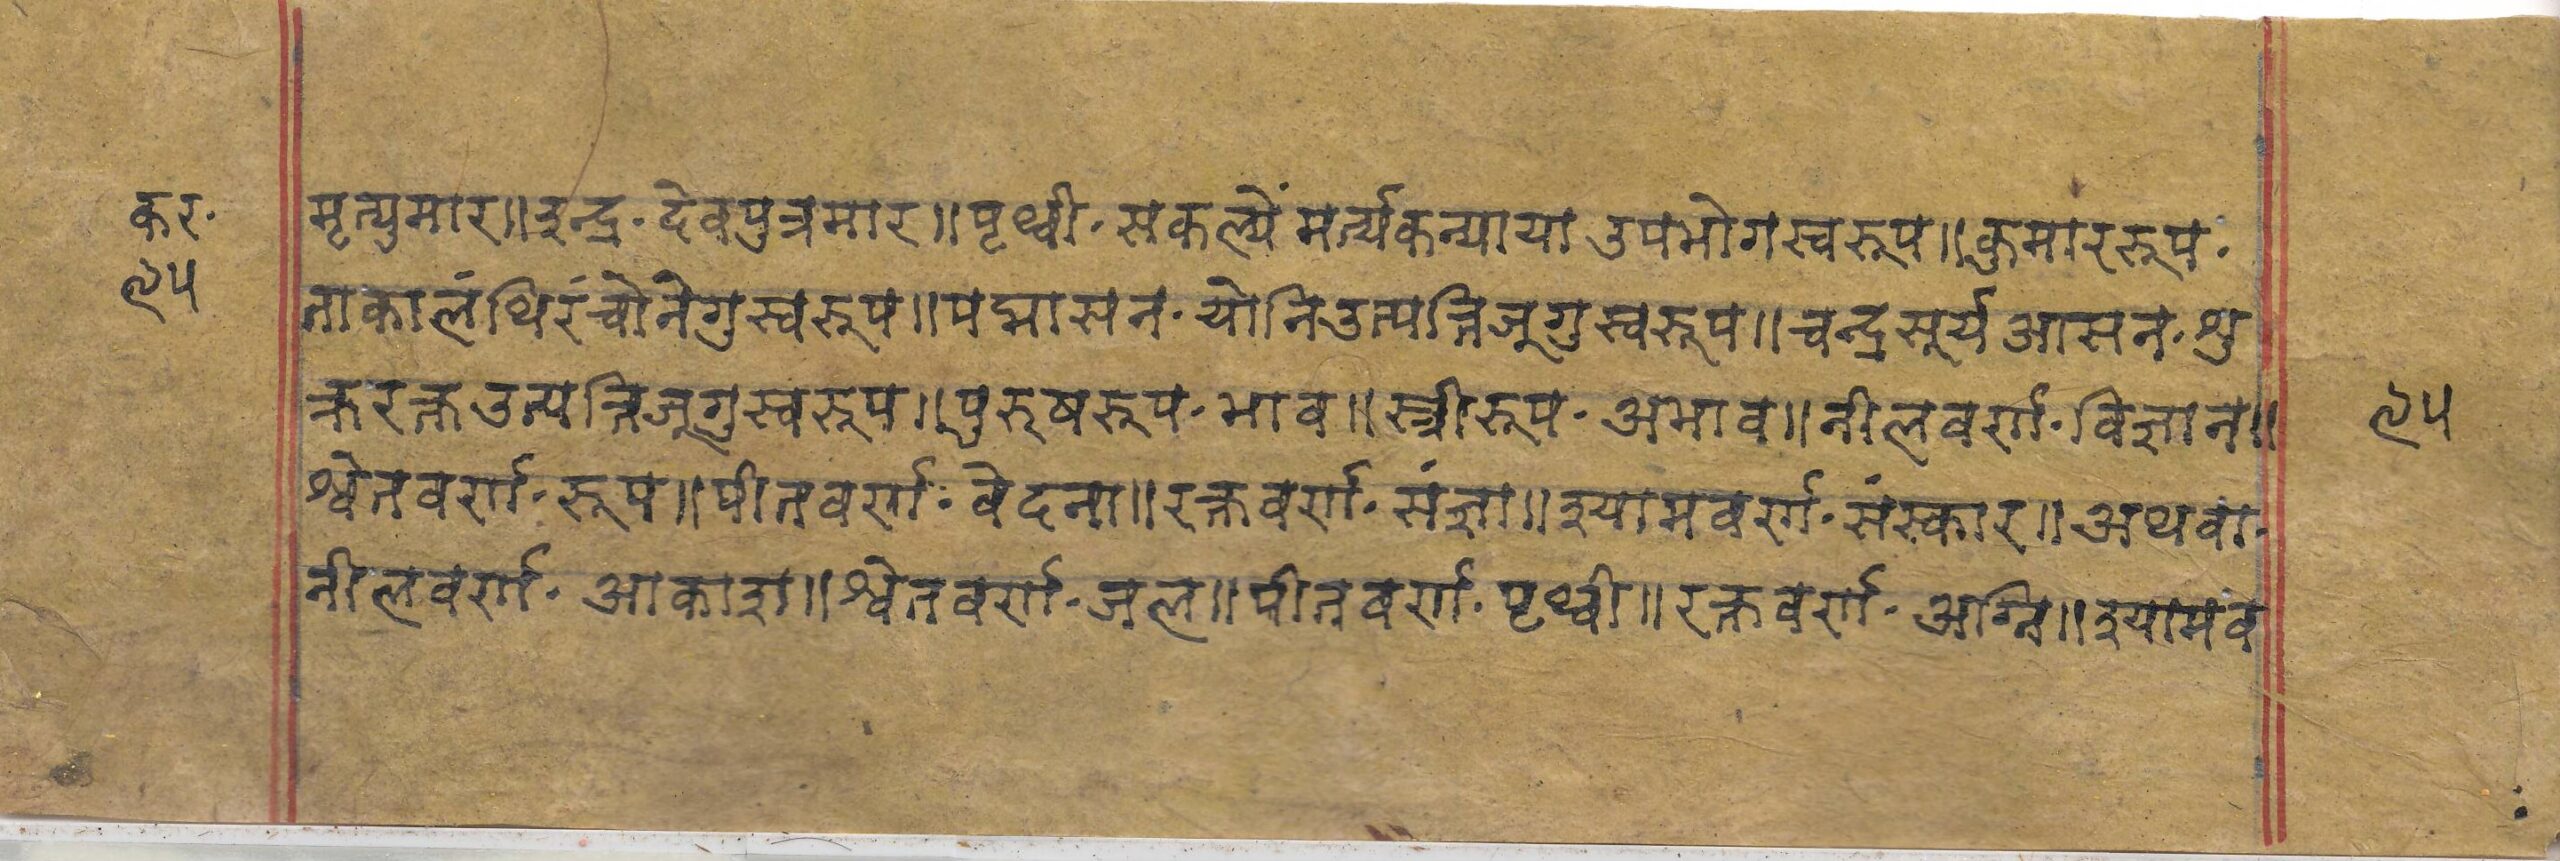 कर.
१५
मृत्युमार॥इन्द्र.देवपुत्रमार॥पृथ्वी.सकल्यें मर्त्यकन्याया उपभोगस्वरूप॥कुमाररूप.
ताकालंथिरंचोनेगुस्वरूप॥पद्मासन.योनिउत्पत्तिजूगुस्वरूप॥चन्द्रसूर्यआसन.शु
क्ररक्तउत्पत्तिजूगुस्वरूप॥पुरुषरूप.भाव॥स्त्रीरूप.अभाव॥नीलवर्ण.विज्ञान॥
१५
श्वेतवर्ण.रूप॥पीतवर्ण.वेदना॥रक्तवर्ण.संज्ञा॥श्यामवर्ण.संस्कार॥अथवा.
नीलवर्ण.आकाश॥श्वेतवर्ण.जल॥पीतवर्ण.पृथ्वी॥रक्तवर्ण.अग्नि॥श्यामव